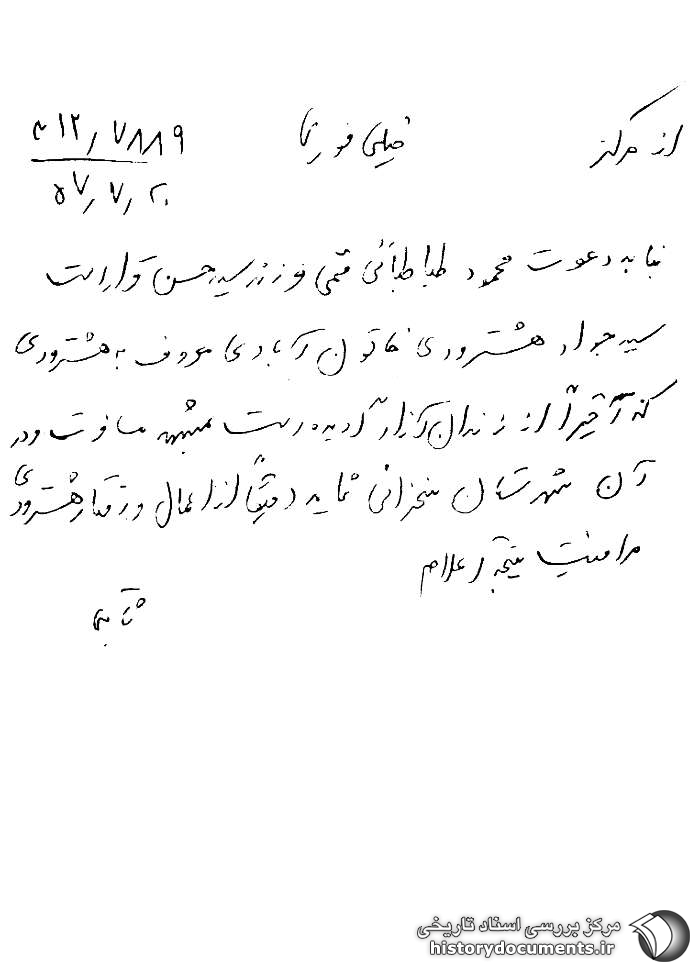 از مرکز
خیلی فوری
۳۱۲/۷۸۸۹
۵۷/۷/۲۰
بنا به دعوت محمود طباطبائی قمی فرزند سیدحسن قرار است
سید جواد هشترودی خاتون آبادی معروف به هشترودی
که اخیراً از زندان آزاد گردیده است به مسافرت و در
آن شهرستان سخنرانی نماید دقیقاً از اعمال و رفتار هشترودی
مراقبت نتیجه اعلام
ثابتی
مرکز بررسی اسناد تاریخی
historydocuments.ir